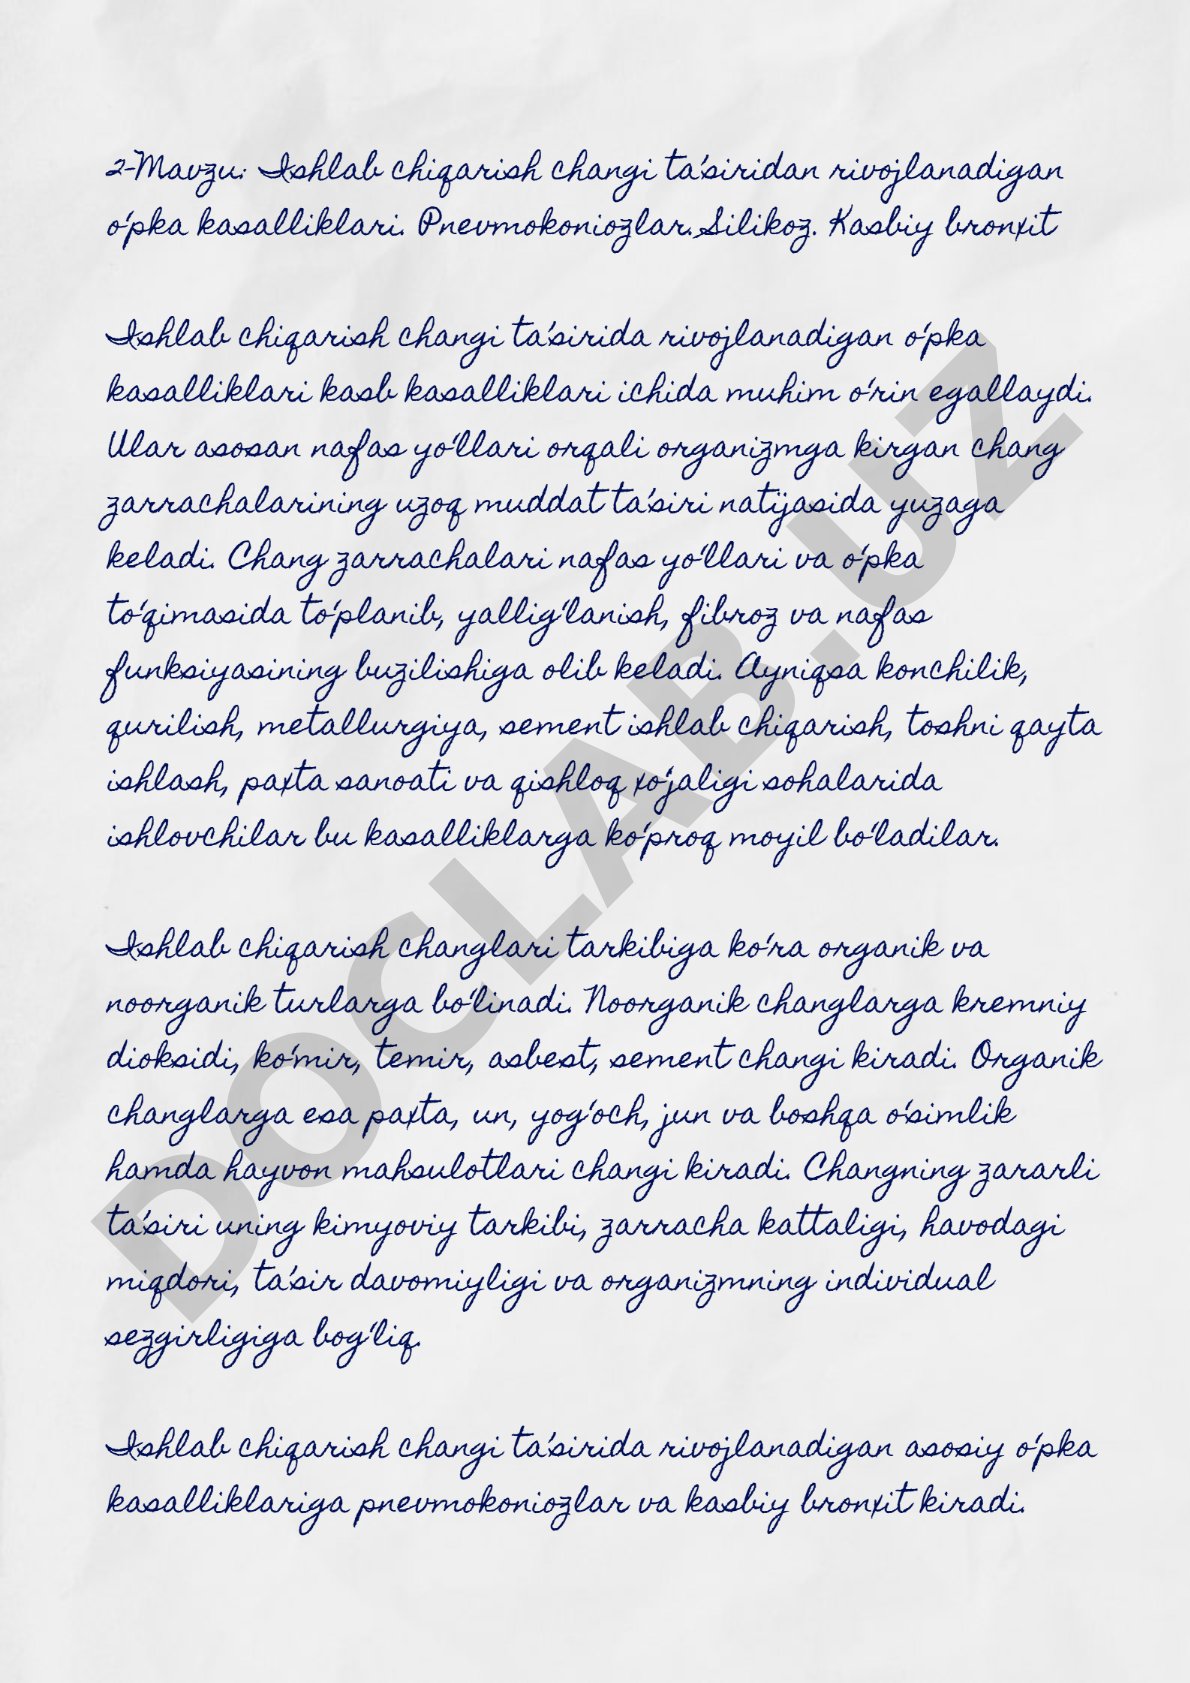 2-Mavzu: Ishlab chiqarish changi ta'siridan rivojlanadigan
o'pka kasalliklari. Pnevmokoniozlar. Silikoz. Kasbiy bronxit
Ishlab chiqarish changi ta'sirida rivojlanadigan o'pka
kasalliklari kasb kasalliklari ichida muhim o'rin egallaydi.
Ular asosan nafas yo'llari orqali organizmga kirgan chang
zarrachalarining uzoq muddat ta'siri natijasida yuzaga
keladi. Chang zarrachalari nafas yo'llari va o'pka
to'qimasida to'planib, yallig'lanish, fibroz va nafas
funksiyasining buzilishiga olib keladi. Ayniqsa konchilik,
qurilish, metallurgiya, sement ishlab chiqarish, toshni qayta
ishlash, paxta sanoati va qishloq xo'jaligi sohalarida
ishlovchilar bu kasalliklarga ko'proq moyil bo'ladilar.
Ishlab chiqarish changlari tarkibiga ko'ra organik va
noorganik turlarga bo'linadi. Noorganik changlarga kremniy
dioksidi, ko'mir, temir, asbest, sement changi kiradi. Organik
changlarga esa paxta, un, yog'och, jun va boshqa o'simlik
hamda hayvon mahsulotlari changi kiradi. Changning zararli
ta'siri uning kimyoviy tarkibi, zarracha kattaligi, havodagi
miqdori, ta'sir davomiyligi va organizmning individual
sezgirligiga bog'liq.
Ishlab chiqarish changi ta'sirida rivojlanadigan asosiy o'pka
kasalliklariga pnevmokoniozlar va kasbiy bronxit kiradi.
DOCLAB.UZ